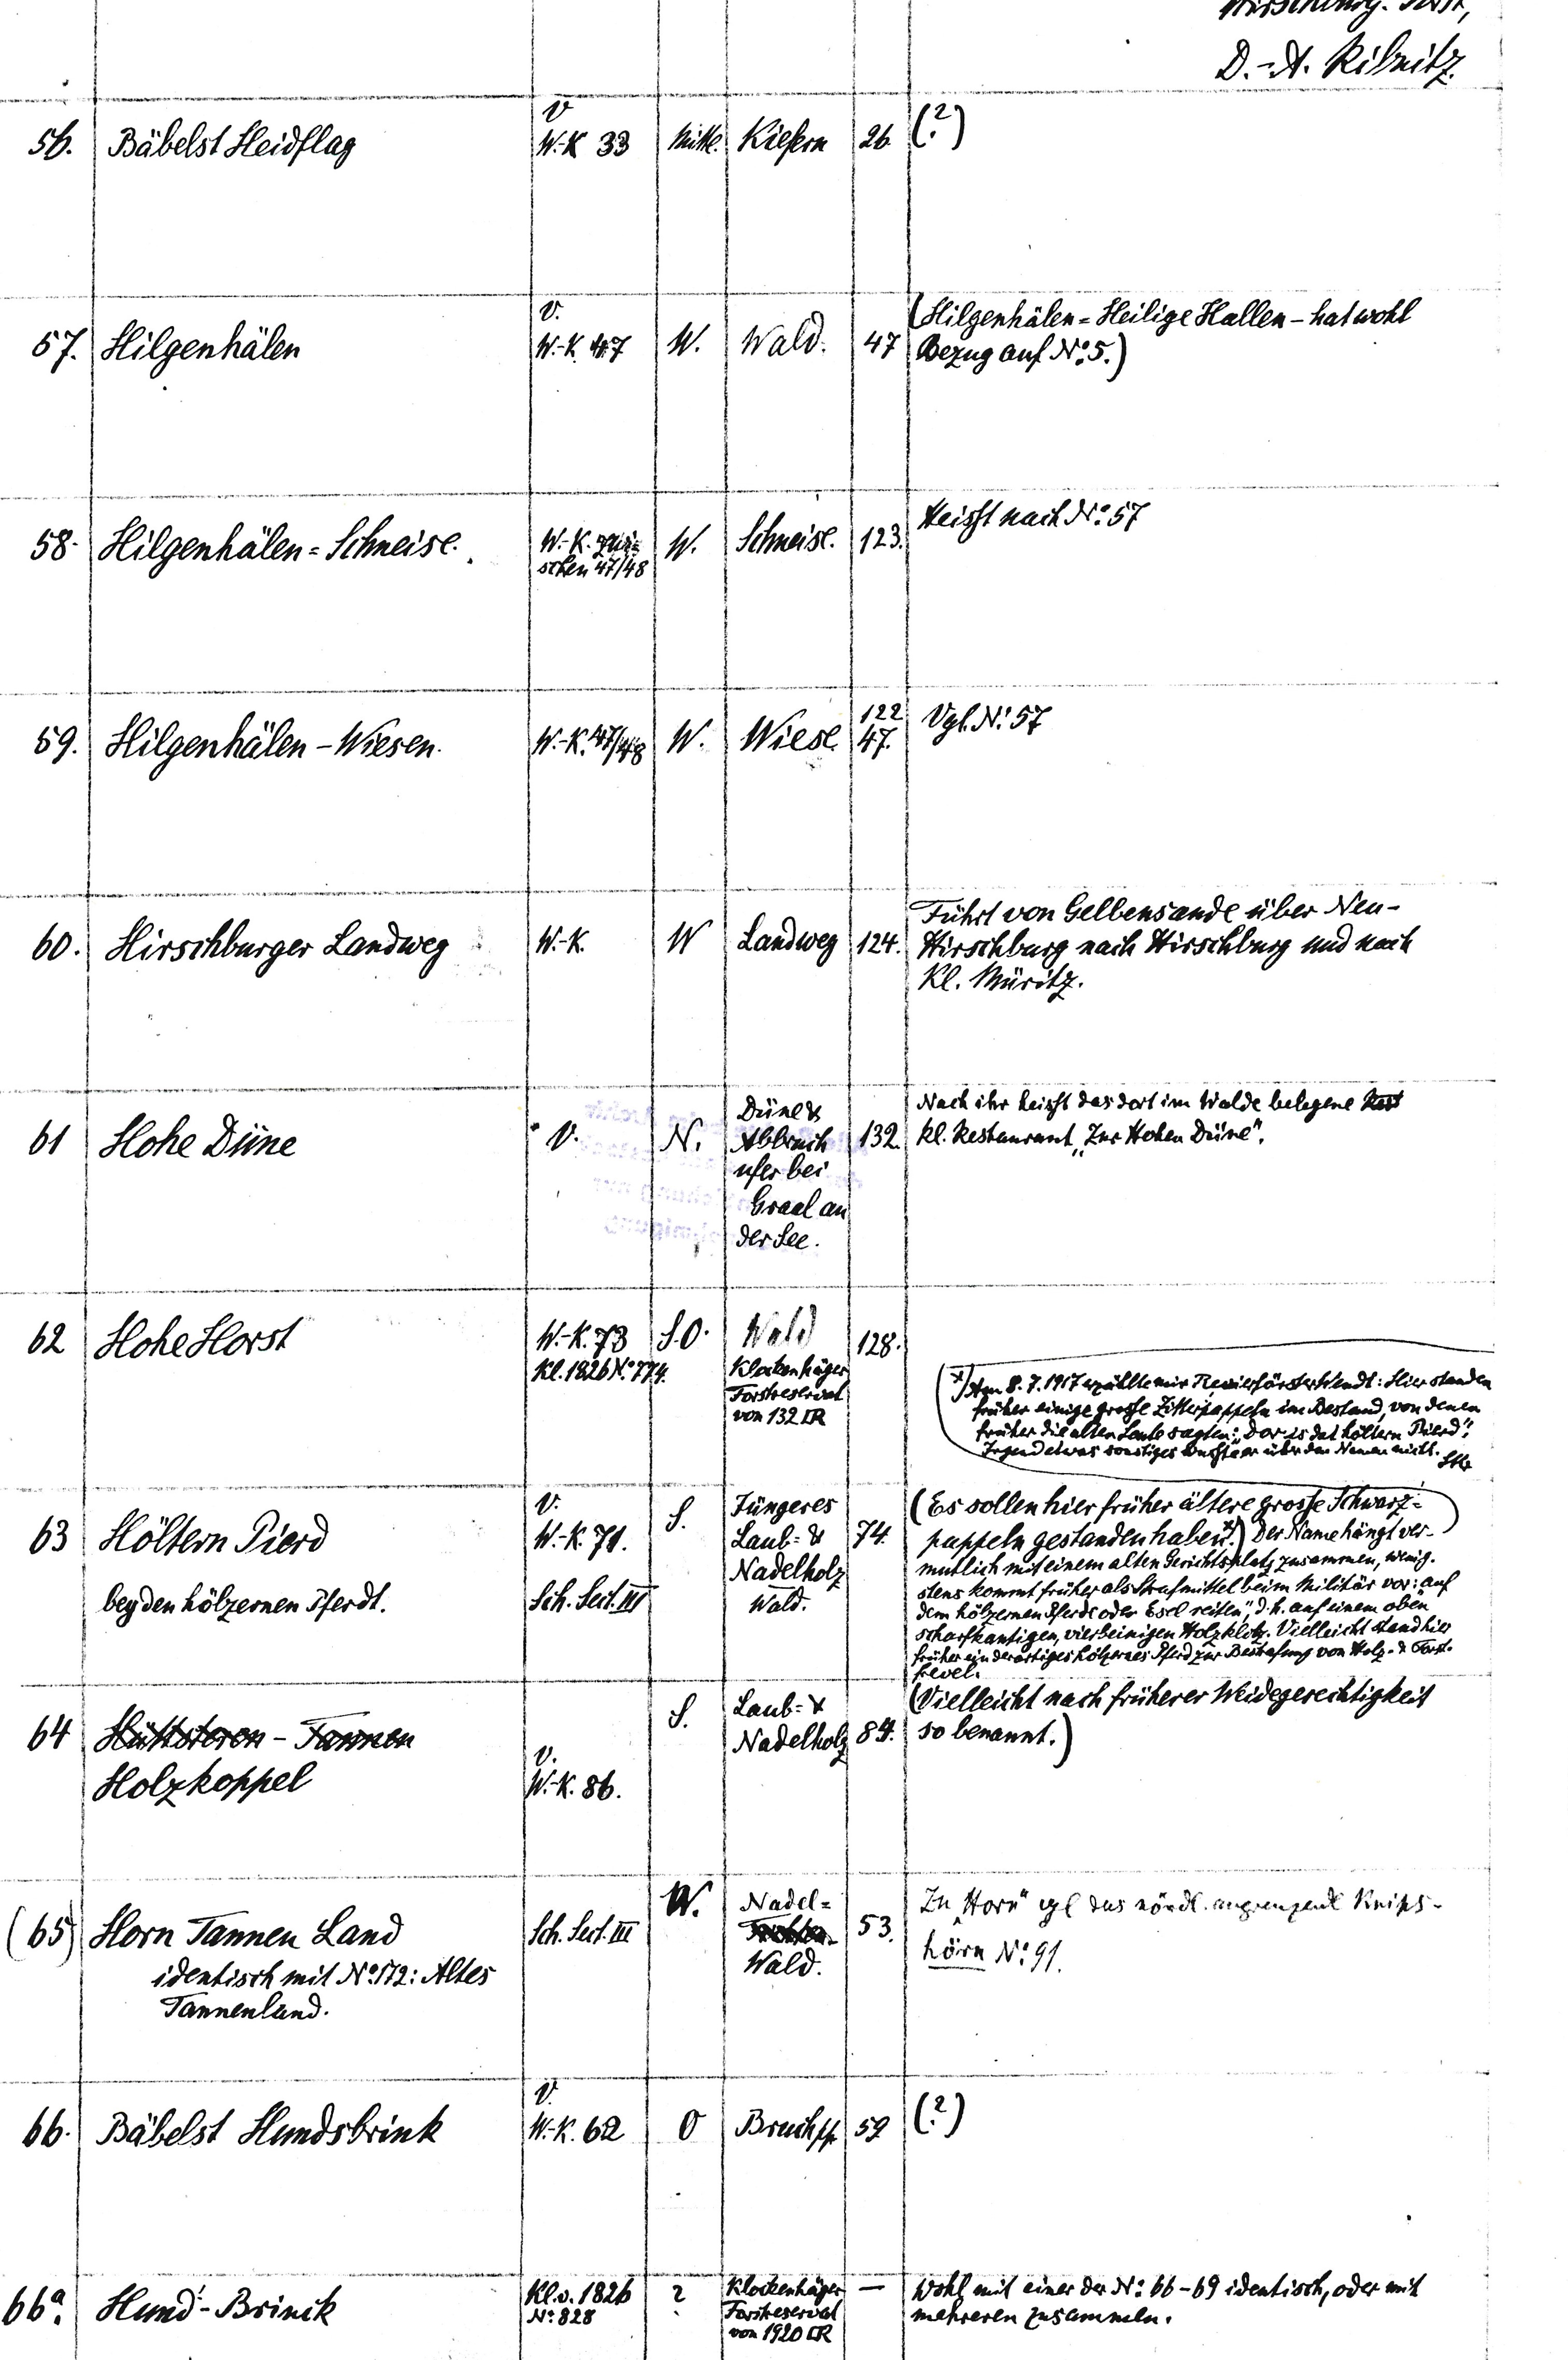 D.-A. Ribnitz.
56. Bäbelst Heidflag V. W.-K 33 Mitte. Kiefern 26. (?)
57. Hilgenhälen V. W.-K. 47 W. Wald. 47 (Hilgenhälen = Heilige Hallen – hat wohl
Bezug auf No. 5.)
58. Hilgenhälen = Schneise. W.-K. zwi=
schen 47/48 W. Schneise. 123. Heisst nach No. 57
59. Hilgenhälen – Wiesen. W.-K. 47/48 W. Wiese. 122
47. Vgl. No. 57
60. Hirschburger Landweg W.-K. W Landweg 124. Führt von Gelbensande über Neu-
Hirschburg nach Hirschburg und nach
Kl. Müritz.
61 Hohe Düne V. N. Düne &
Abbruch
ufer bei
Graal an
der See.
132. Nach ihr heisst das dort im Walde belegene
kl. Restaurant „Zur Hohen Düne".
62 Hohe Horst W.-K. 73
Kl. 1826 No. 774. S.O. Wald
Klockenhäger
Forstreservat
von 132 □R
128.
x) Am 8.7.1917 erzählte mir Revierförster Wendt: Hier standen
früher einige grosse Zitterpappeln im Bestand, von denen
früher die alten Leute sagten: „Dor is dat höltern Pierd".
Irgend etwas sonstiges wusste er über den Namen nicht.
63 Höltern Pierd
bey den hölzernen Pferdt.
V.
W.-K. 71.
Sch. Sect. III
S. Jüngeres
Laub- &
Nadelholz
Wald.
74. (Es sollen hier früher ältere grosse Schwarz=
pappeln gestanden haben. x) Der Name hängt ver-
mutlich mit einem alten Gerichtsplatz zusammen, wenig.
stens kommt früher als Strafmittel beim Militär vor: „auf
dem hölzernen Pferde oder Esel reiten", d.h. auf einem oben
scharfkantigen, vierbeinigen Holzklotz. Vielleicht stand hier
früher ein derartiges hölzernes Pferd zur Bestrafung von Holz- & Forst-
frevel.
64 Holzkoppel
V.
W.-K. 86.
S. Laub- &
Nadelholz 84. (Vielleicht nach früherer Weidegerechtigkeit
so benannt.)
(65) Horn Tannen Land
identisch mit No. 172: Altes
Tannenland.
Sch. Sect. III W. Nadel=
Wald.
53. Zu „Horn" vgl das nördl. angrenzende Knips-
hörn No. 91.
66. Bäbelst Hundsbrink V. W.-K. 62 O Bruch 59 (?)
66a. Hund-Brinck Kl. v. 1826
No. 828 ? Klockenhäger
Forstreservat
von 1920 □R
— Wohl mit einer der No. 66–69 identisch, oder mit
mehreren zusammen.